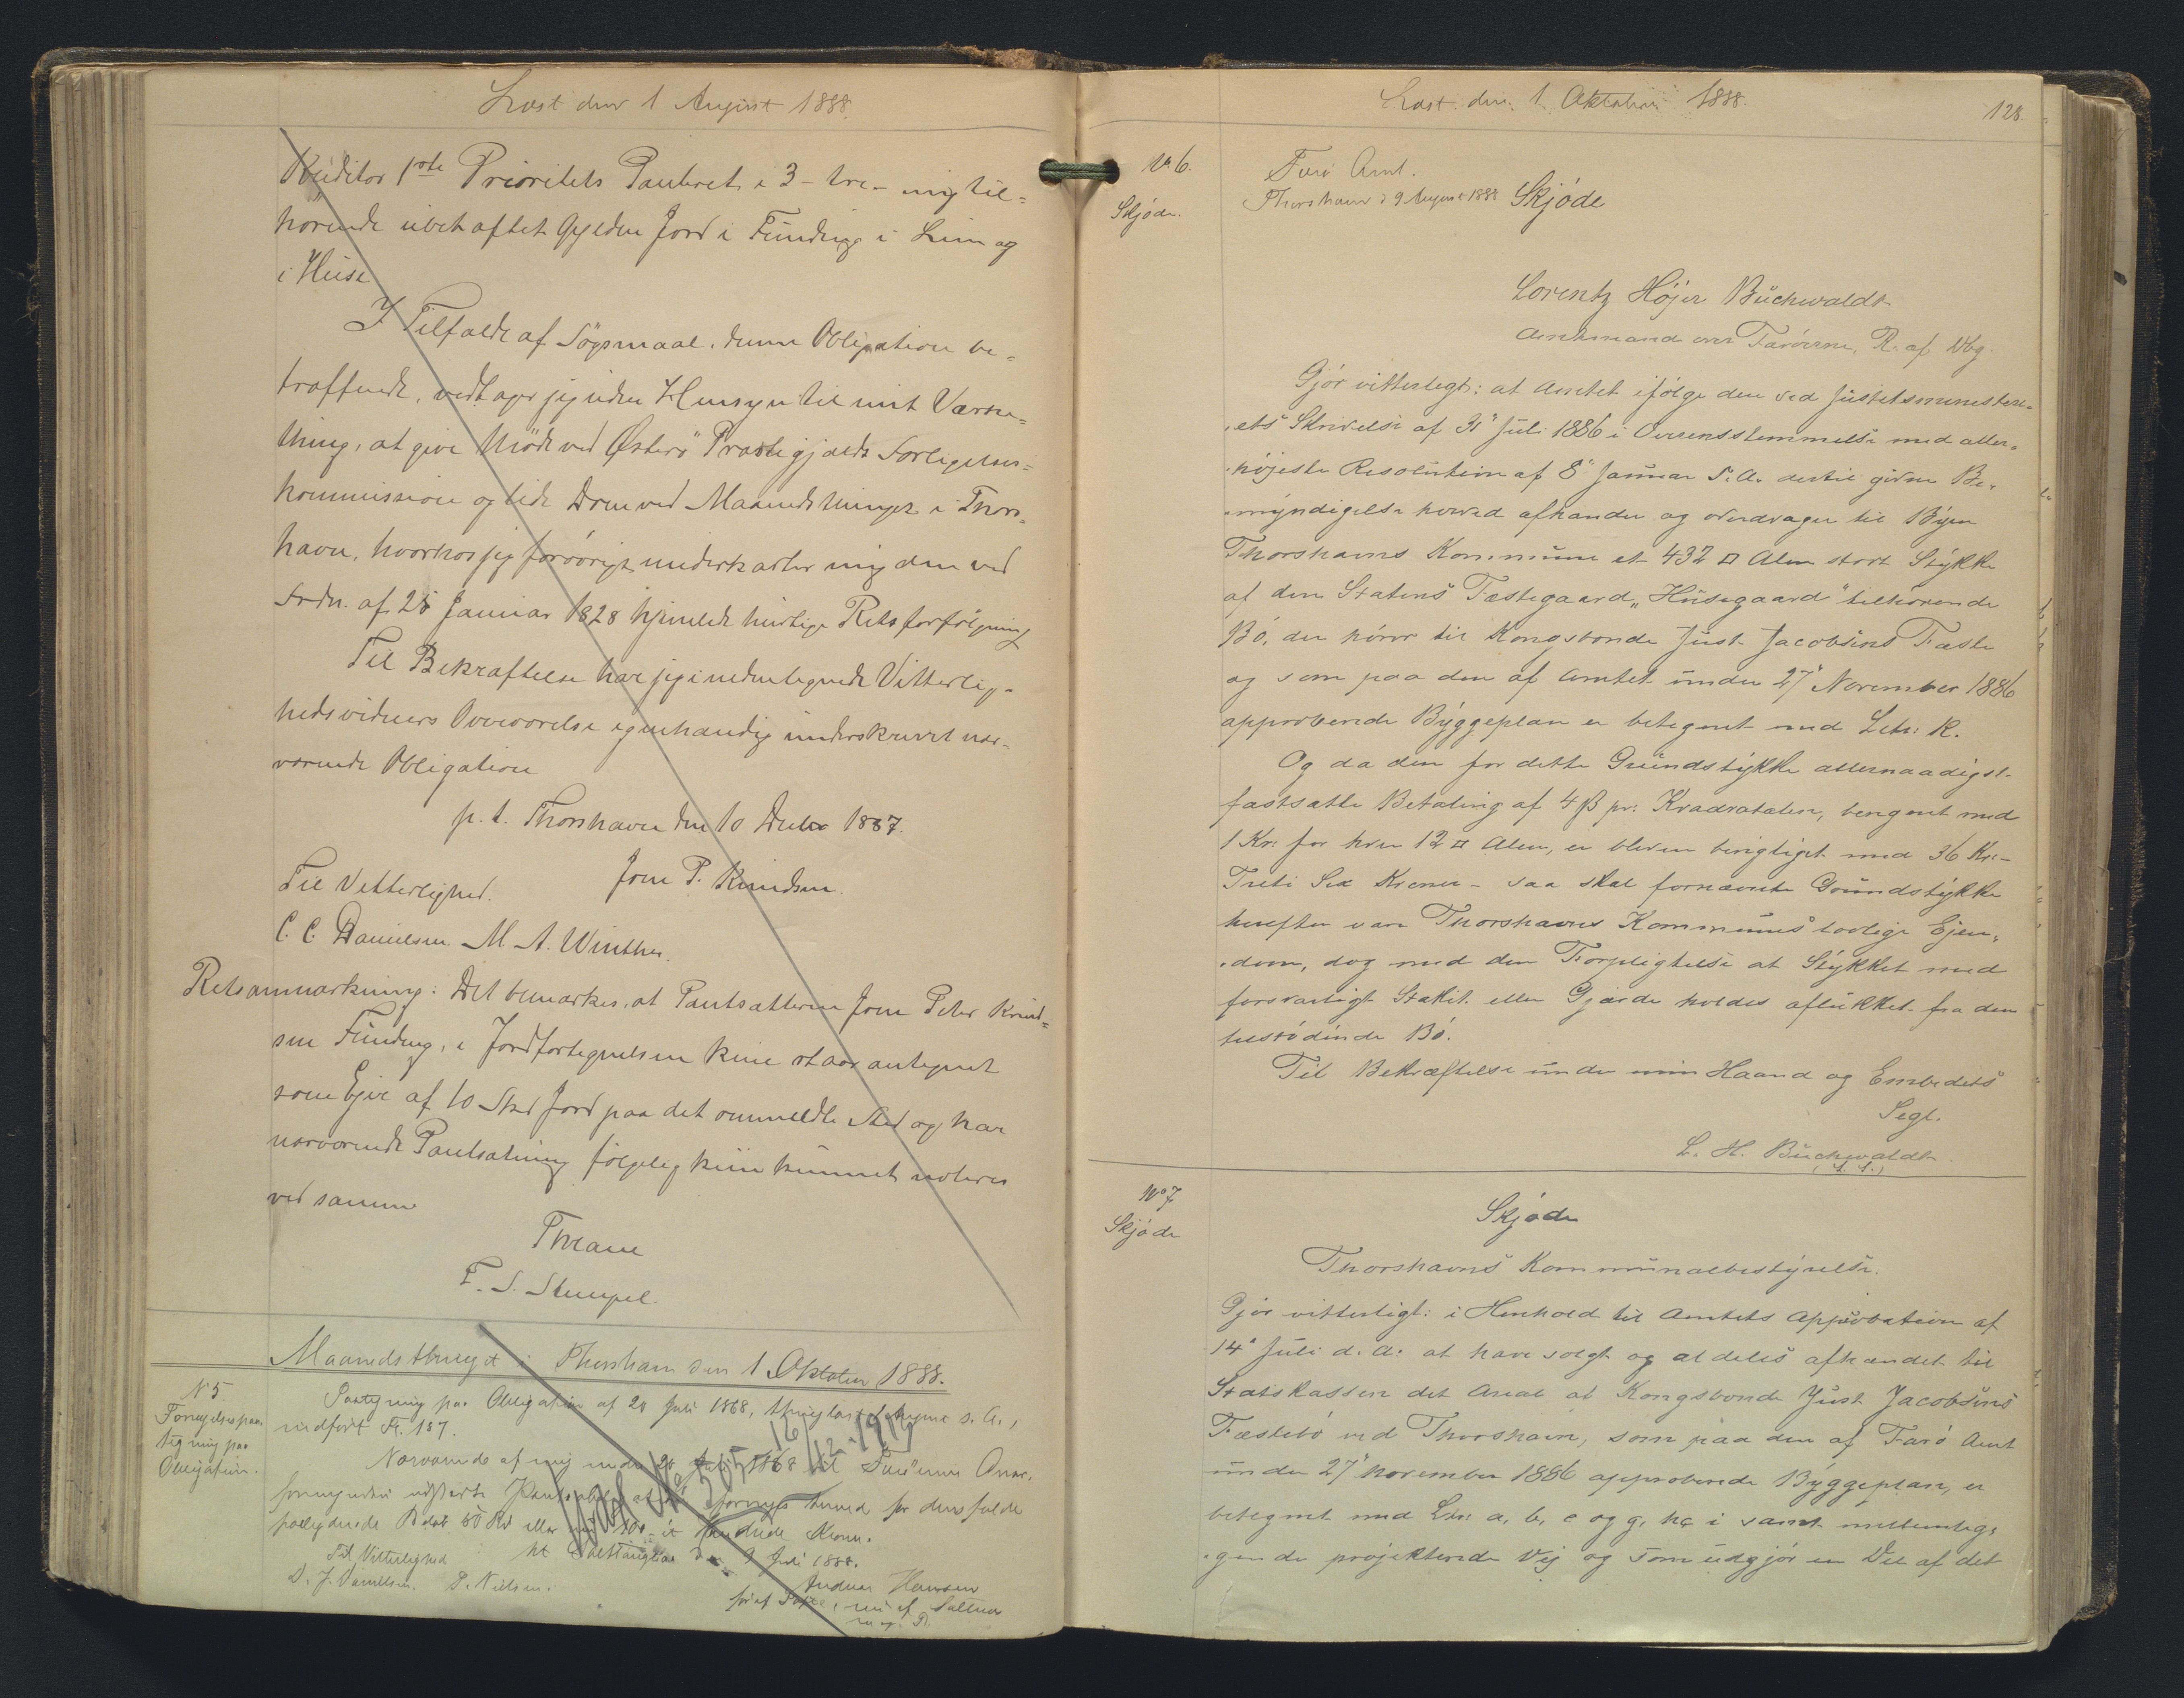 Læst den 1 August 1888.
Kreditor 1ste Prioritets Panteret i 3 - tre - mig til=
hörende ubehæftet Gylden Jord i Funding i Lun og
i Huse
I Tilfælde af Sögsmaal, denne Obligation be=
træffende, vedtager jeg uden Hensyn til mit Værne=
thing, at give Möde ved Østerö Præstegjælds Forligelses=
kommission og lide Dom ved Maanedsthinget i Thors=
havn, hvorhos jeg forövrigt underkaster mig den ved
Frdn. af 25 Januar 1828 hjemlede hurtige Retsforfölgning
Til Bekræftelse har jeg i undertegnede Vitterlig=
hedsvidners Overværelse egenhændig underskrevet nær=
værende Obligation
p. t. Thorshavn den 10 Decbr 1887.
Joen P. Knudsen.
Til Vitterlighed.
C. C. Danielsen. M. A. Winther.
Retsanmærkning: Det bemærkes, at Pantsætteren Joen Peter Knud=
sen Funding, i Jordfortegnelsen kun staar antegnet
som Ejer af 10 Skd Jord paa det ommeldte Sted og har
nærværende Pantsætning fölgelig kun kunnet noteres
ved samme
Threane
F. S. Stempel.
Maanedsthinget i Thorshavn den 1 Oktober 1888.
N 5
Fornyelsespaa=
tegning paa
Obligation.
Paategning paa Obligation af 20 Juli 1868, thinglæst 1 August s. A.,
indfört Fl. 157.
Nærværende af mig under 20 Juli 1868 til Færöernes
udstedte fornyes herved for dens fulde
paalydende Belöb 50 Rd eller nu 100 - et Hundrede Kroner.
pt den 9 Juli 1888.
Til Vitterlighed
D. J. Danielsen. P. Nielsen.
Andreas Hansen
för af nu af
m. f. P.
Udsl No 505 16/12-1912
Læst den 1 Oktober 1888.
128.
No 6.
Skjöde.
Færö Amt.
Thorshavn d 9 August 1888
Skjöde
Lorentz Højer Buchwaldt
Amtmand over Færöerne, R. af Dbg.
Gjör vitterlegt: at Amtet ifölge den ved Justitsministeri=
ets Skrivelse af 31' Juli 1886 i Overensstemmelse med aller=
höjeste Resolution af 8' Januar s. A. dertil givne Be=
myndigelse herved afhænder og overdrager til Byen
Thorshavns Kommune et 432 □ Alen stort Stykke
af den Statens Fæstegaard "Husagaard" tilhörende
Bö, der hörer til Kongsbonde Just Jacobsens Fæste
og som paa den af Amtet under 27' November 1886
approberede Byggeplan er betegnet med Litr: K.
Og da den for dette Grundstykke allernaadigst
fastsatte Betaling af 4 ß pr: Kvadratalen, beregnet med
1 Kr: for hver 12 □ Alen, er bleven berigtiget med 36 Kr: -
Treti Sex Kroner - saa skal fornævnte Grundstykke
herefter være Thorshavns Kommunes lovlige Ejen=
dom, dog med den Forpligtelse at Stykket med
forsvarligt Stakit eller Gjærde holdes aflukket fra den
tilstödende Bö.
Til Bekræftelse under min Haand og Embedets
Segl.
L. H. Buchwaldt.
(L. S.)
No 7
Skjöde
Skjöde
Thorshavns Kommunalbestyrelse.
Gjör vitterligt: i Henhold til Amtets Approbation af
14' Juli d. A. at have solgt og aldeles afhændet til
Statskassen det Areal af Kongsbonde Just Jacobsens
Fæstebö ved Thorshavn, som paa den af Færö Amt
under 27' November 1886 approberede Byggeplan, er
betegnet med Litr: a, b, c og g, h i samt mellemlig=
gende projekterede Vej og som udgjör en Del af det